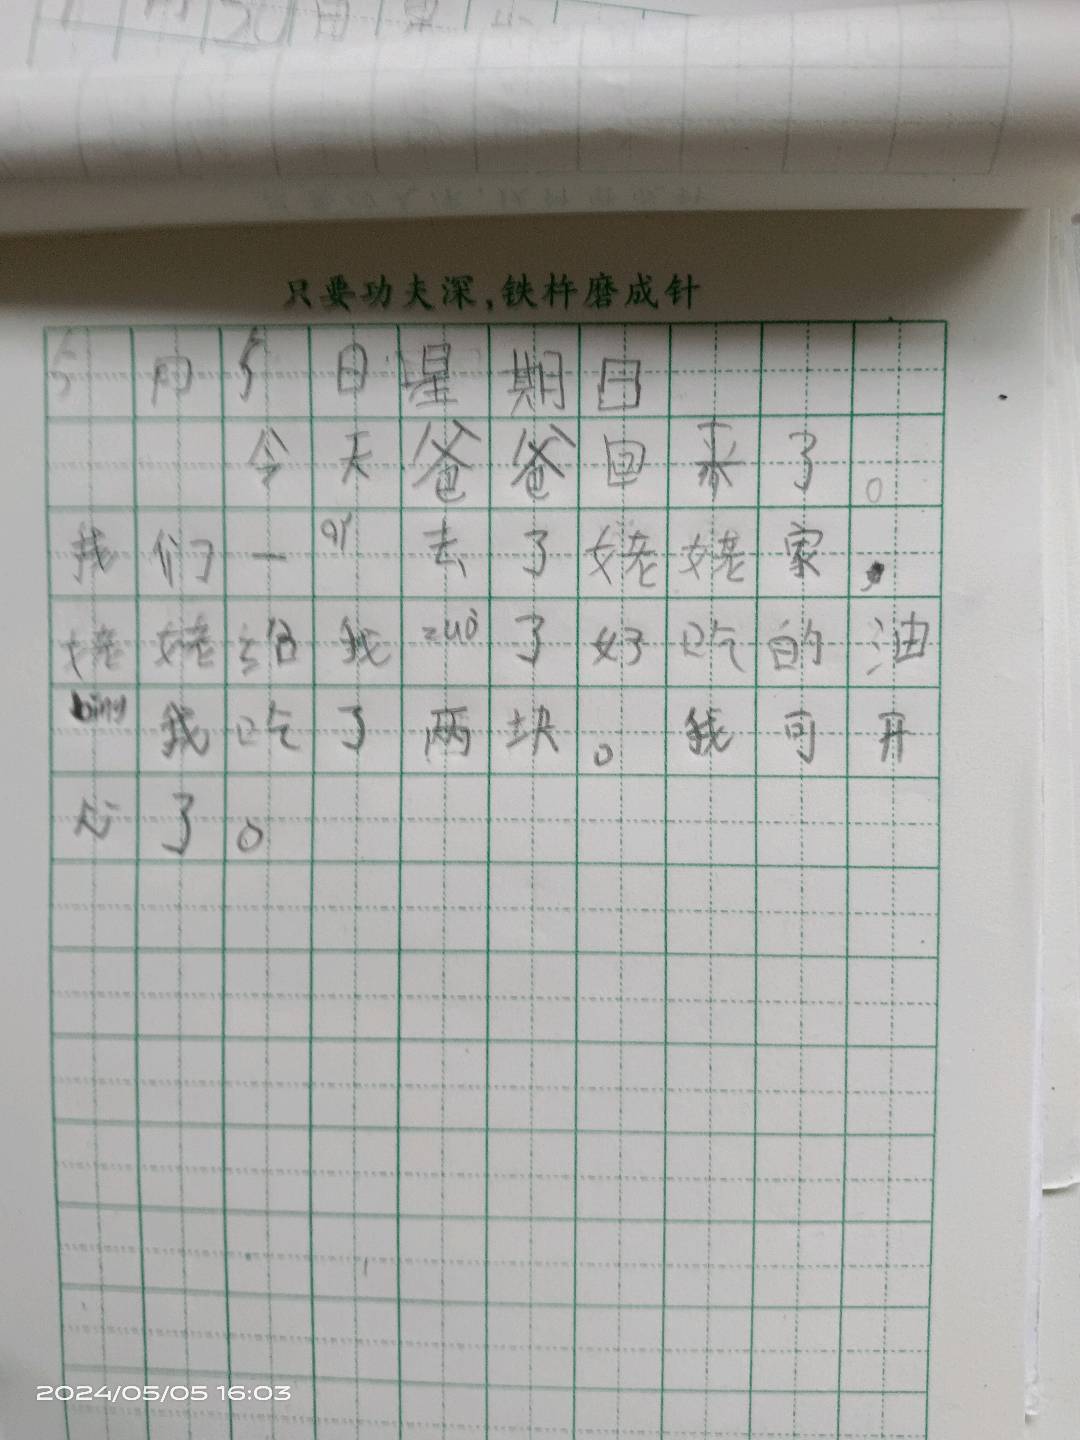 只要功夫深,铁杵磨成针
5月5日星期日
今天爸爸回来了。
我们一qǐ去了姥姥家,
姥姥给我zuò了好吃的油
bǐng我吃了两块。我可开
心了。
2024/05/05 16:03